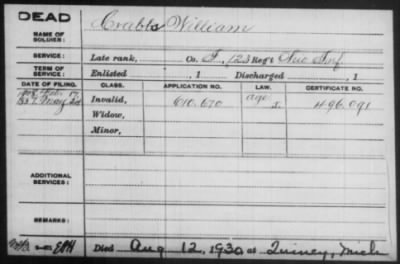 DEAD
NAME OF SOLDIER: Crabbs William
SERVICE: Late rank, Co. F, 123 Reg't Ohio Inf
TERM OF SERVICE: Enlisted , 1 Discharged , 1
DATE OF FILING. CLASS. APPLICATION NO. LAW. CERTIFICATE NO.
Invalid, 610.670 496.091
1887. May age
Widow,
Minor,
ADDITIONAL SERVICES:
REMARKS:
Died Aug 12, 1930 at Quincy, Mich